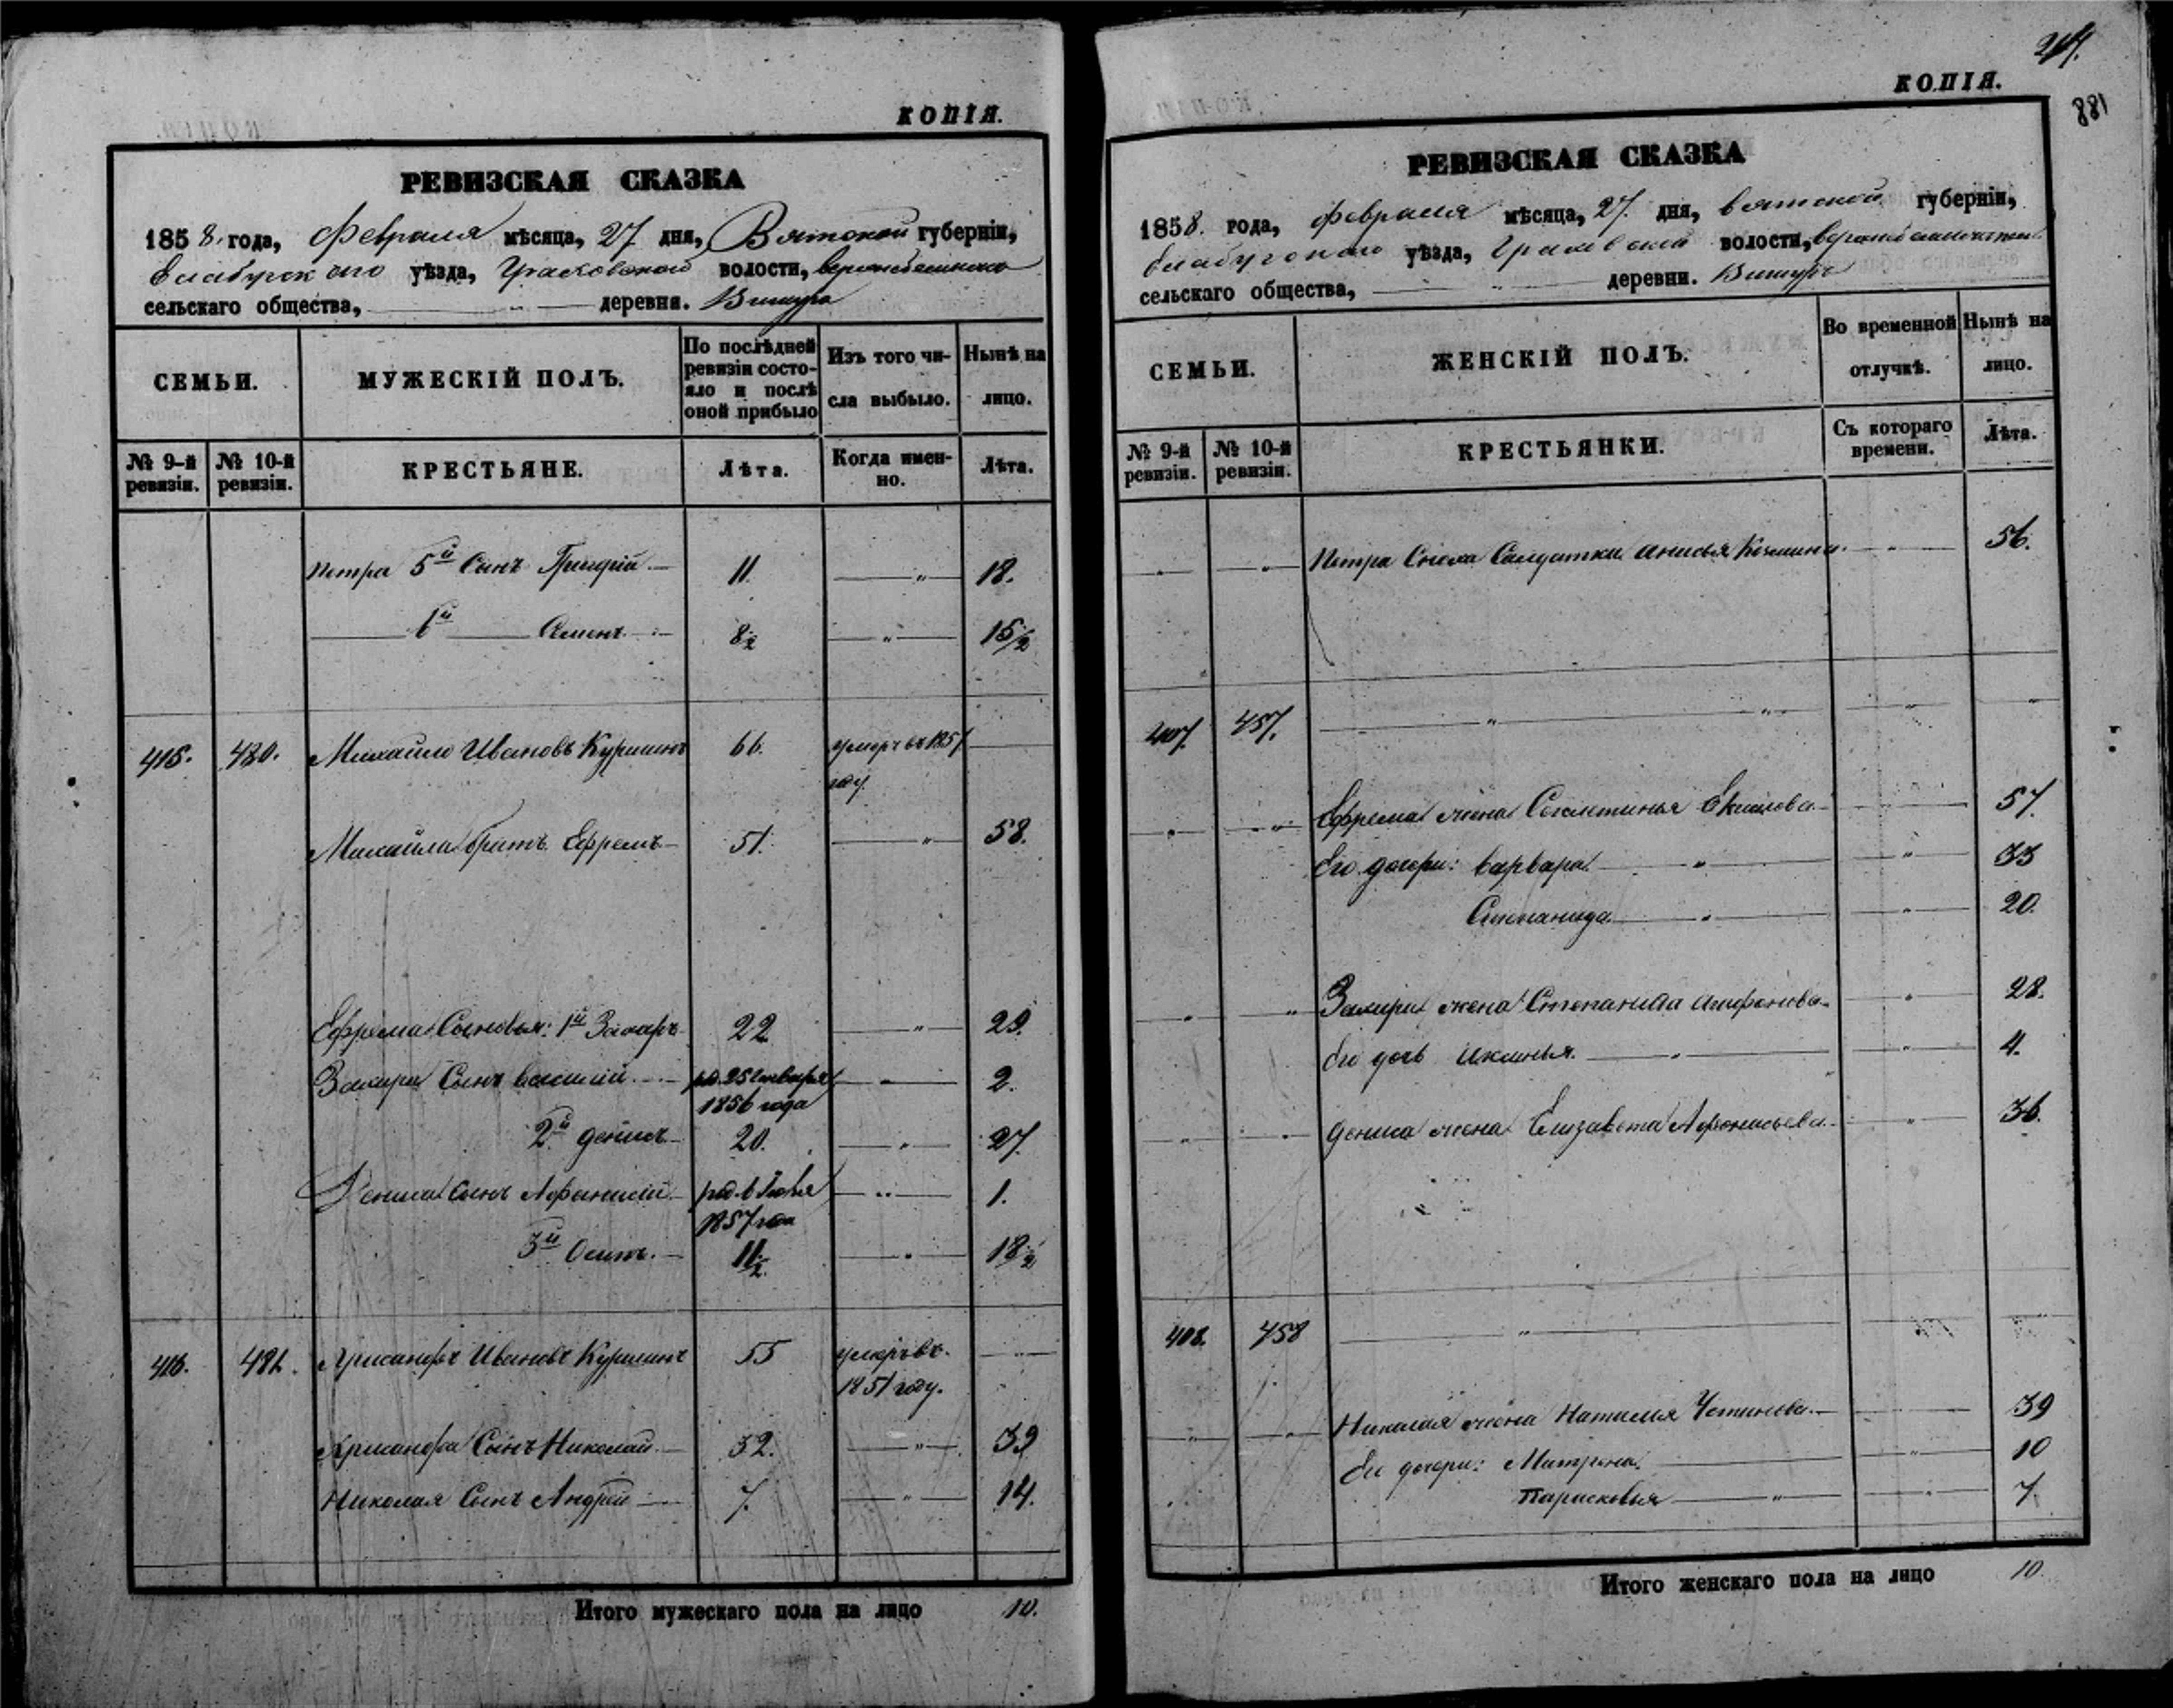 КОПІЯ.
РЕВИЗСКАЯ СКАЗКА
1858. года, Февраля мѣсяца, 27 дня, Вятской губерніи,
Елабужскаго уѣзда, волости,
сельскаго общества, деревня.
СЕМЬИ.
МУЖЕСКІЙ ПОЛЪ.
По послѣдней
ревизіи состо-
яло и послѣ
оной прибыло
Изъ того чи-
сла выбыло.
Нынѣ на
лицо.
№ 9-й
ревизіи.
№ 10-й
ревизіи.
КРЕСТЬЯНЕ.
Лѣта.
Когда имен-
но.
Лѣта.
Петра 5й Сынъ Григорій 11. 18.
6й Семенъ 8½ 15½
415. 480. Михайло Ивановъ 66. умеръ въ 1851
году
Михайла братъ Ефремъ 51. 58.
Ефрема Сыновья: 1й Захаръ 22 29.
Захара Сынъ Василій 2.
1856 года
2й Денисъ 20. 27.
Дениса Сынъ Афанасій 1.
1857 года
3й Осипъ. 11½ 18½
416. 481. Хрисанфъ Ивановъ 55 умеръ въ
1851 году.
Хрисанфа Сынъ Николай 32. 39
Николая Сынъ Андрей 7. 14.
Итого мужескаго пола на лицо 10.
КОПІЯ.
881
РЕВИЗСКАЯ СКАЗКА
1858. года, Февраля мѣсяца, 27. дня, Вятской губерніи,
Елабужскаго уѣзда, волости,
сельскаго общества, деревни.
СЕМЬИ.
ЖЕНСКІЙ ПОЛЪ.
Во временной
отлучкѣ.
Нынѣ на
лицо.
№ 9-й
ревизіи.
№ 10-й
ревизіи.
КРЕСТЬЯНКИ.
Съ котораго
времени.
Лѣта.
Петра Сноха Солдатка Анисья 56.
407. 457.
Ефрема жена 57
Его дочери: Варвара 33
Степанида 20.
Захара жена Степанида 28.
Его дочь 4.
Дениса жена Елизавета Афонасьева 36.
408. 458
Николая жена Наталья Устинова 39
Его дочери: Матрена 10
Парасковья 7.
Итого женскаго пола на лицо 10